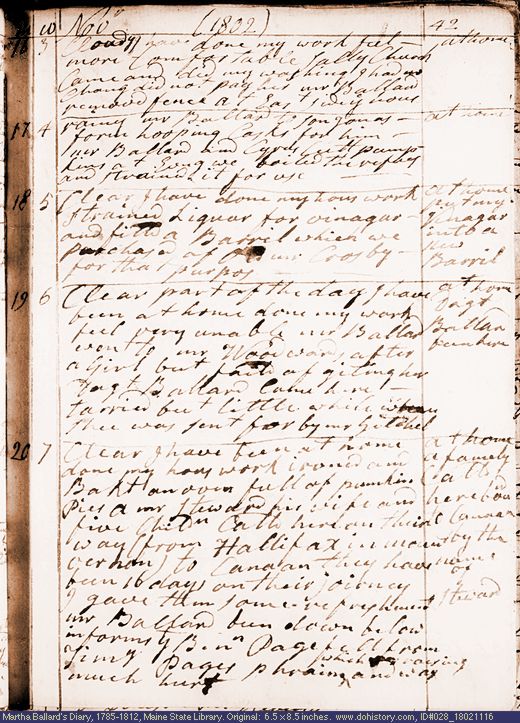 10 Novr (1802) 42
16 3 Cloudy I have done my work feel at home
more Comfortable Sally Church
Came and did my washing I had no
Chang did not pay her mr Ballard
removed fence at East side hous
17 4 rainy mr Ballard at home
hooping Casks for him
mr Ballard and Cyrus
at Evng we boiled the
and strained it for use
18 5 Clear I have done my hous work at home
strained Liquor for vinagar put my
and fill'd a Barril which we vinagar
purchased of mr Crosby into a
for that purpos new
Barril
19 6 Clear part of the day I have at home
been at home done my work Dagt
feel very unable mr Ballard Ballard
went to mr Woodward after been here
a Girl but faild of giting her
Dagt Ballard Came here
tarried but little while
Shee was sent for by mr Gitchel
20 7 Clear I have been at home at home
done my hous work ironed and a famely
Bakt an oven full of pumkin Calld
Pies a mr Steward his wife and here bound
five Childn Calld here on their to Canaan
way from Hallifax in by the
vernon) to Canaan they have name
been 16 days on their joirney of
I gave them some refreshment Steward
mr Ballard been down below
informs Benn Page fell from
Pages phraim which was raising
much hurt and was
Martha Ballard's Diary, 1785-1812, Maine State Library. Original: 6.5 x 8.5 inches. www.dohistory.org, ID#028_18021116